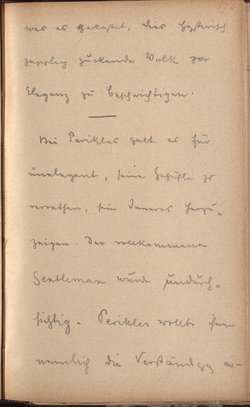 was es gekostet, dies hysterisch
zapplig zuckende Volk zur
Eleganz zu beschwichtigen.
Bei Perikles galt es für
unelegant, seine Gefühle zu
verrathen, sein Inneres herzu-
zeigen. Der vollkommene
Gentleman wurde undurch-
sichtig. Perikles wollte
nemlich die Verständigen